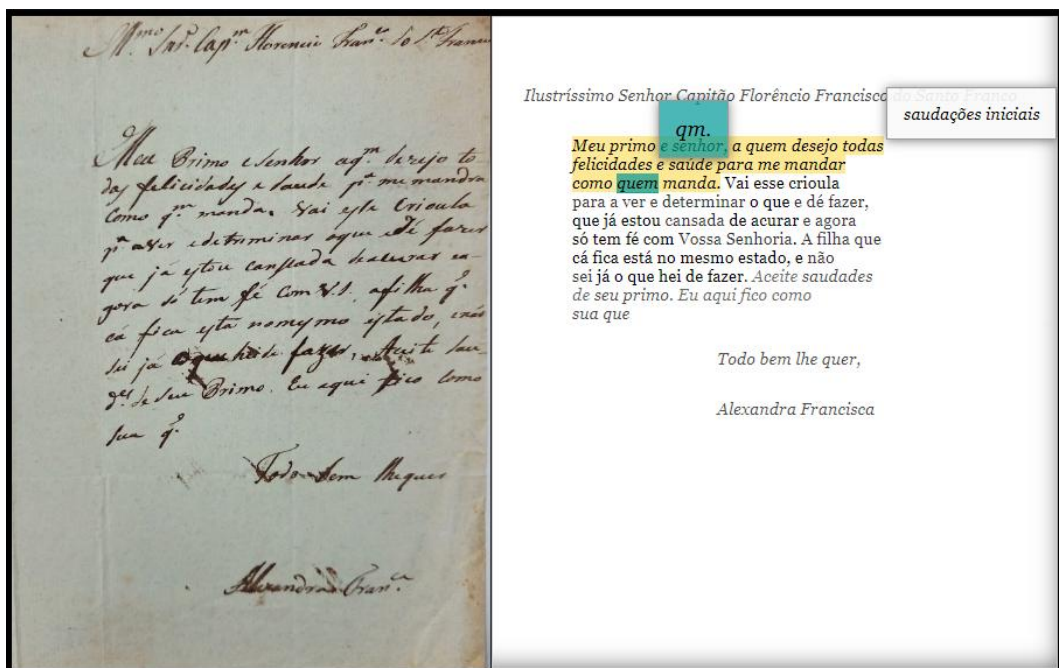 Illmo Snr. Capm Florencio Franco do Sto Franco
Meu Primo e senhor aqm dezejo to-
das felicidades e saude pa. me mandra
Como qm. manda. Vai este Crioula
pa aver e detriminar oque e Dé fazer
que já estou canssada deacurar ea-
gora só tem fé com V.S. afilha q.
cá fica esta nomesmo estado, enáo
sei já oque heide fazer. Aceite sau-
des de seu Primo. Eu aqui fico como
sua q.
Todo bem lhequer
Alexandra Franca
Ilustríssimo Senhor Capitão Florêncio Francisco do Santo Franco
saudações iniciais
qm.
Meu primo e senhor, a quem desejo todas
felicidades e saúde para me mandar
como quem manda. Vai esse crioula
para a ver e determinar o que e dé fazer,
que já estou cansada de acurar e agora
só tem fé com Vossa Senhoria. A filha que
cá fica está no mesmo estado, e não
sei já o que hei de fazer. Aceite saudades
de seu primo. Eu aqui fico como
sua que
Todo bem lhe quer,
Alexandra Francisca